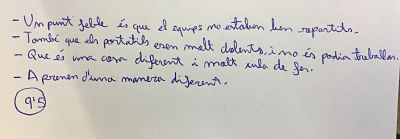 - Un punt feble és que el equips no estaben ben repartits.
- També que els portatils eren molt dolents, i no és podia treballar.
- Que és una cosa diferent i molt xula de fer.
- Aprenen d'una manera diferent.
9'5